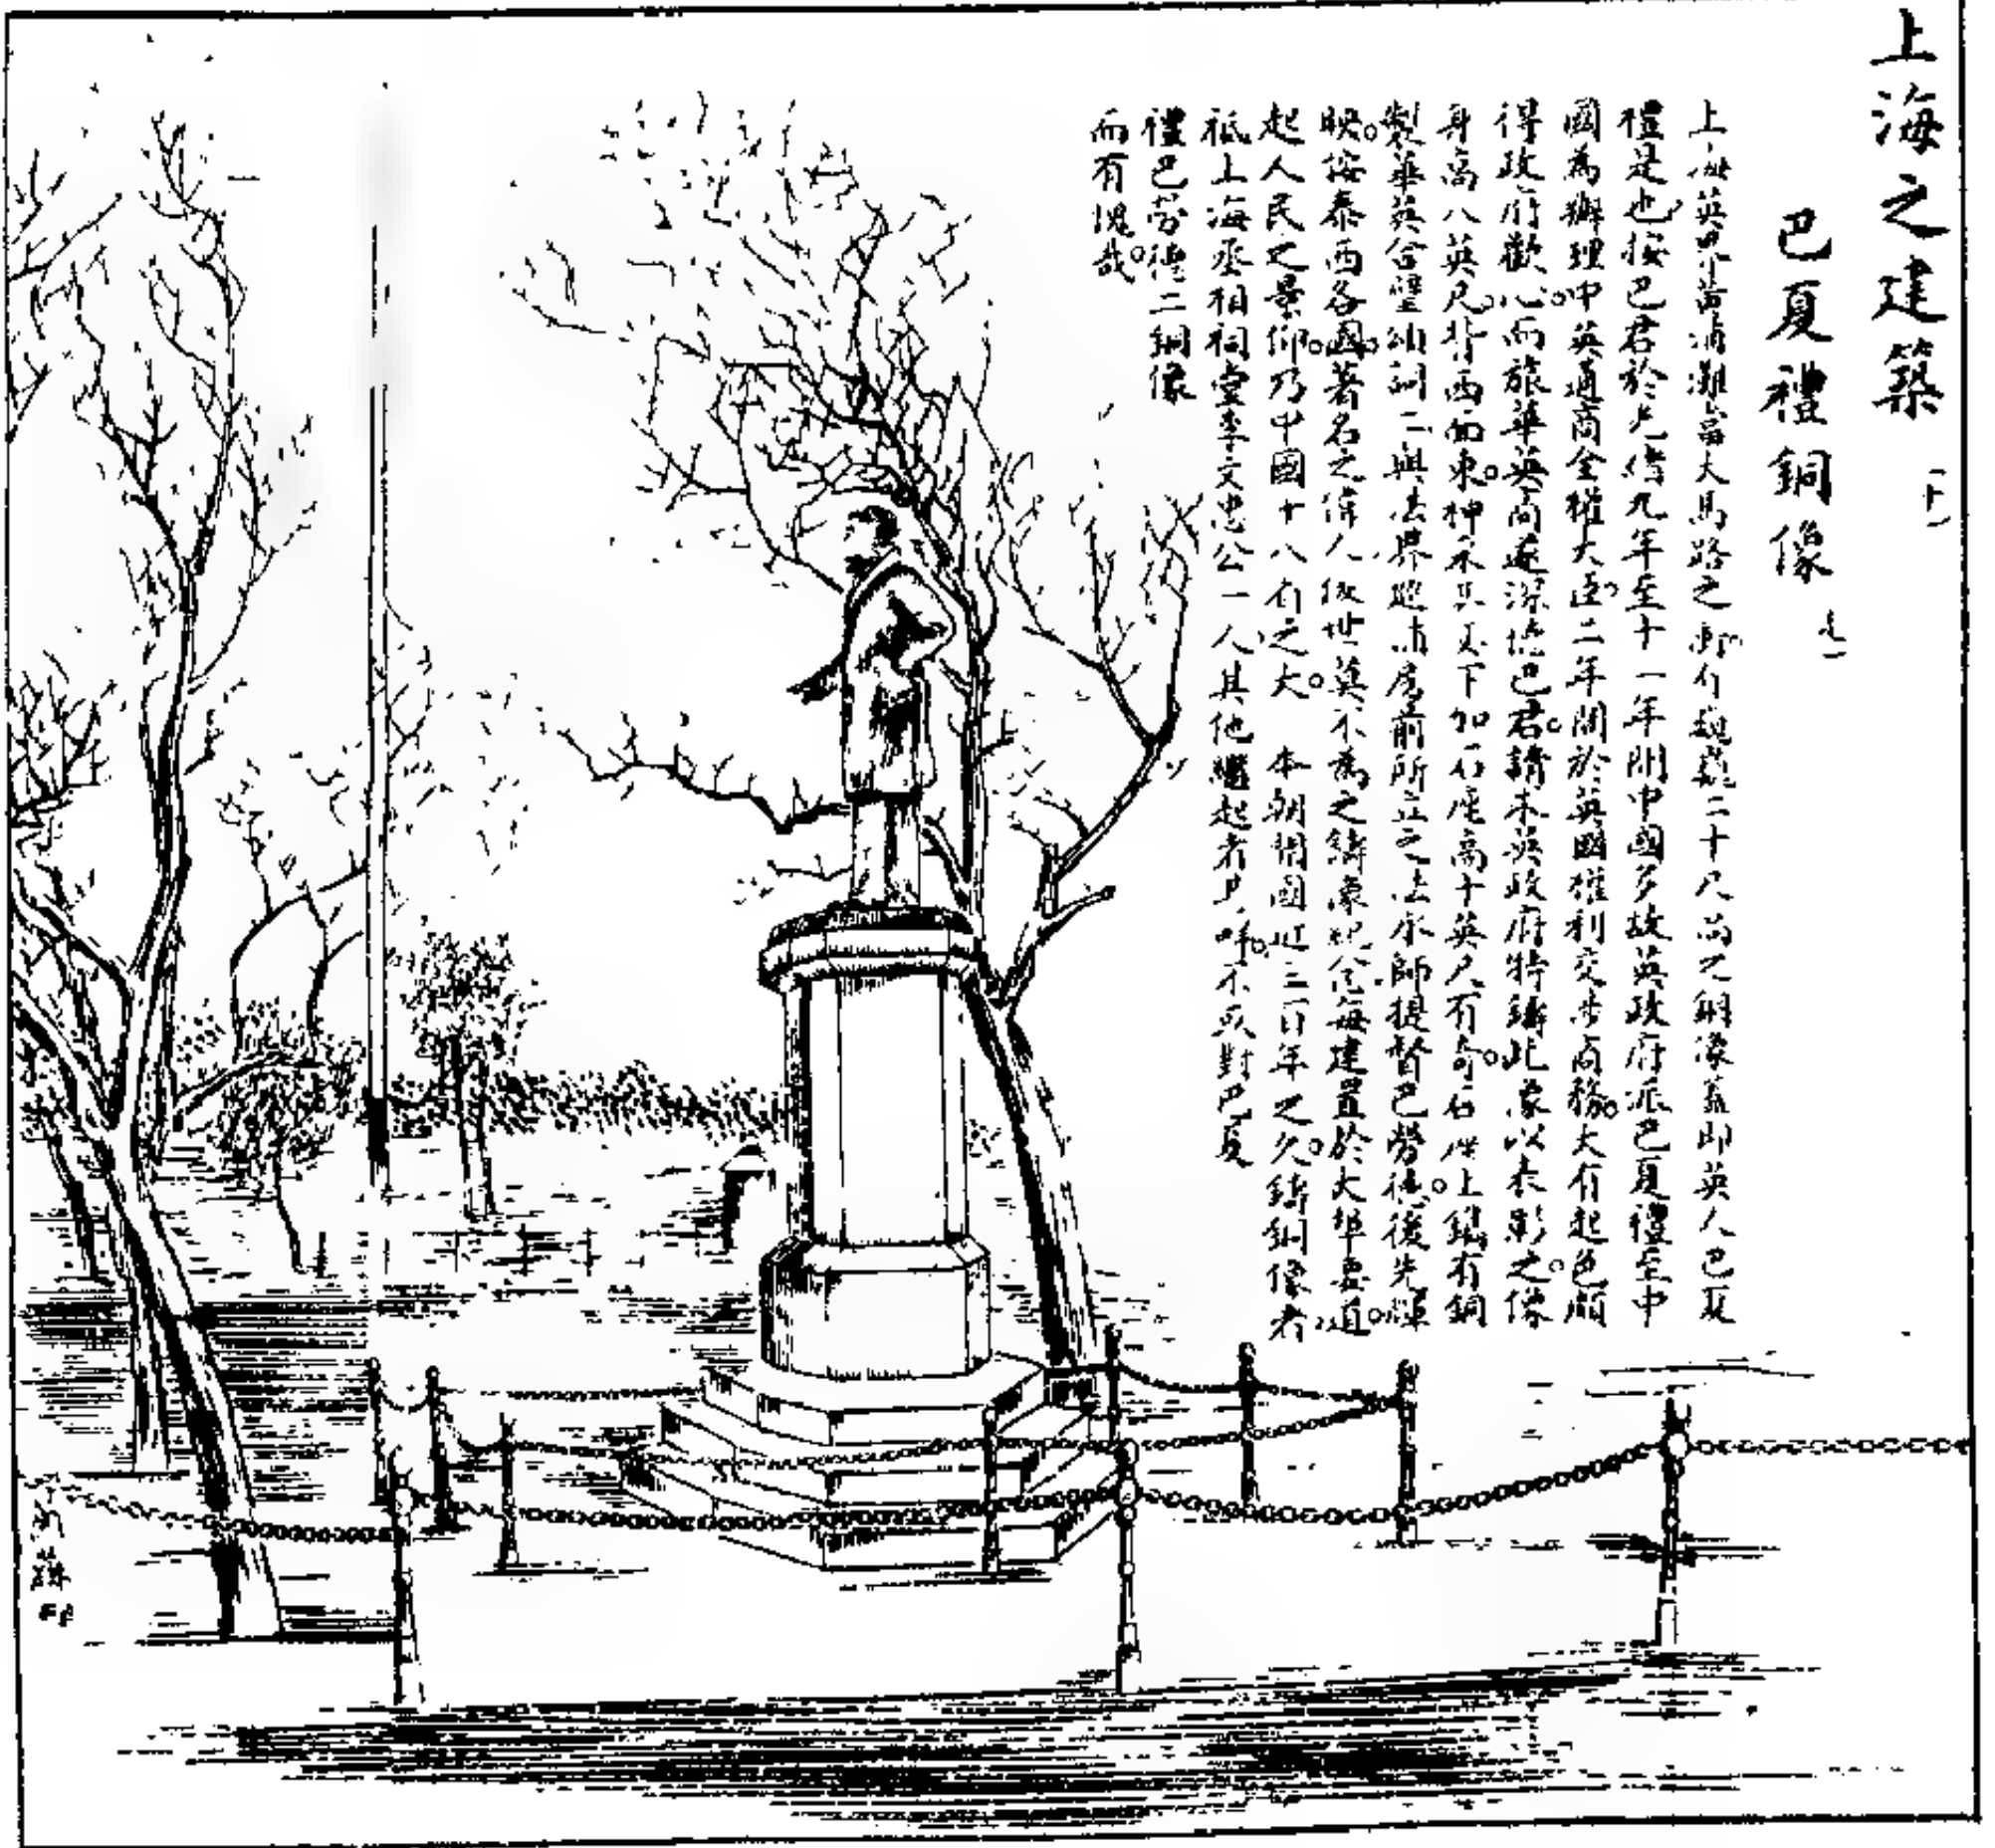 上海之建築
(十)
巴夏禮銅像
上海英界黃浦灘當大馬路之衝有巍巍二十尺高之銅像蓋即英人巴夏
禮是也按巴君於光緒九年至十一年間中國多故英政府派巴夏禮至中
國為辦理中英通商全權大臣二年間於英國權利交涉商務大有起色頗
得政府歡心而旅華英商遂深德巴君請本英政府特鑄此像以表彰之像
身高八英尺背西面東神采下加石座高十英尺有奇石座上鐫有銅
製華英合璧頌詞二與法界巡捕房前所立之法水師提督巴勞德後先輝
映按泰西各國著名之偉人後世莫不為之鑄像紀念每建置於大埠要道
起人民之景仰乃中國十八省之大 本朝開國近三百年之久鑄銅像者
祇上海丞相祠堂李文忠公一人其他繼起者尹呼不亦對巴夏
禮巴勞德二銅像
而有愧哉